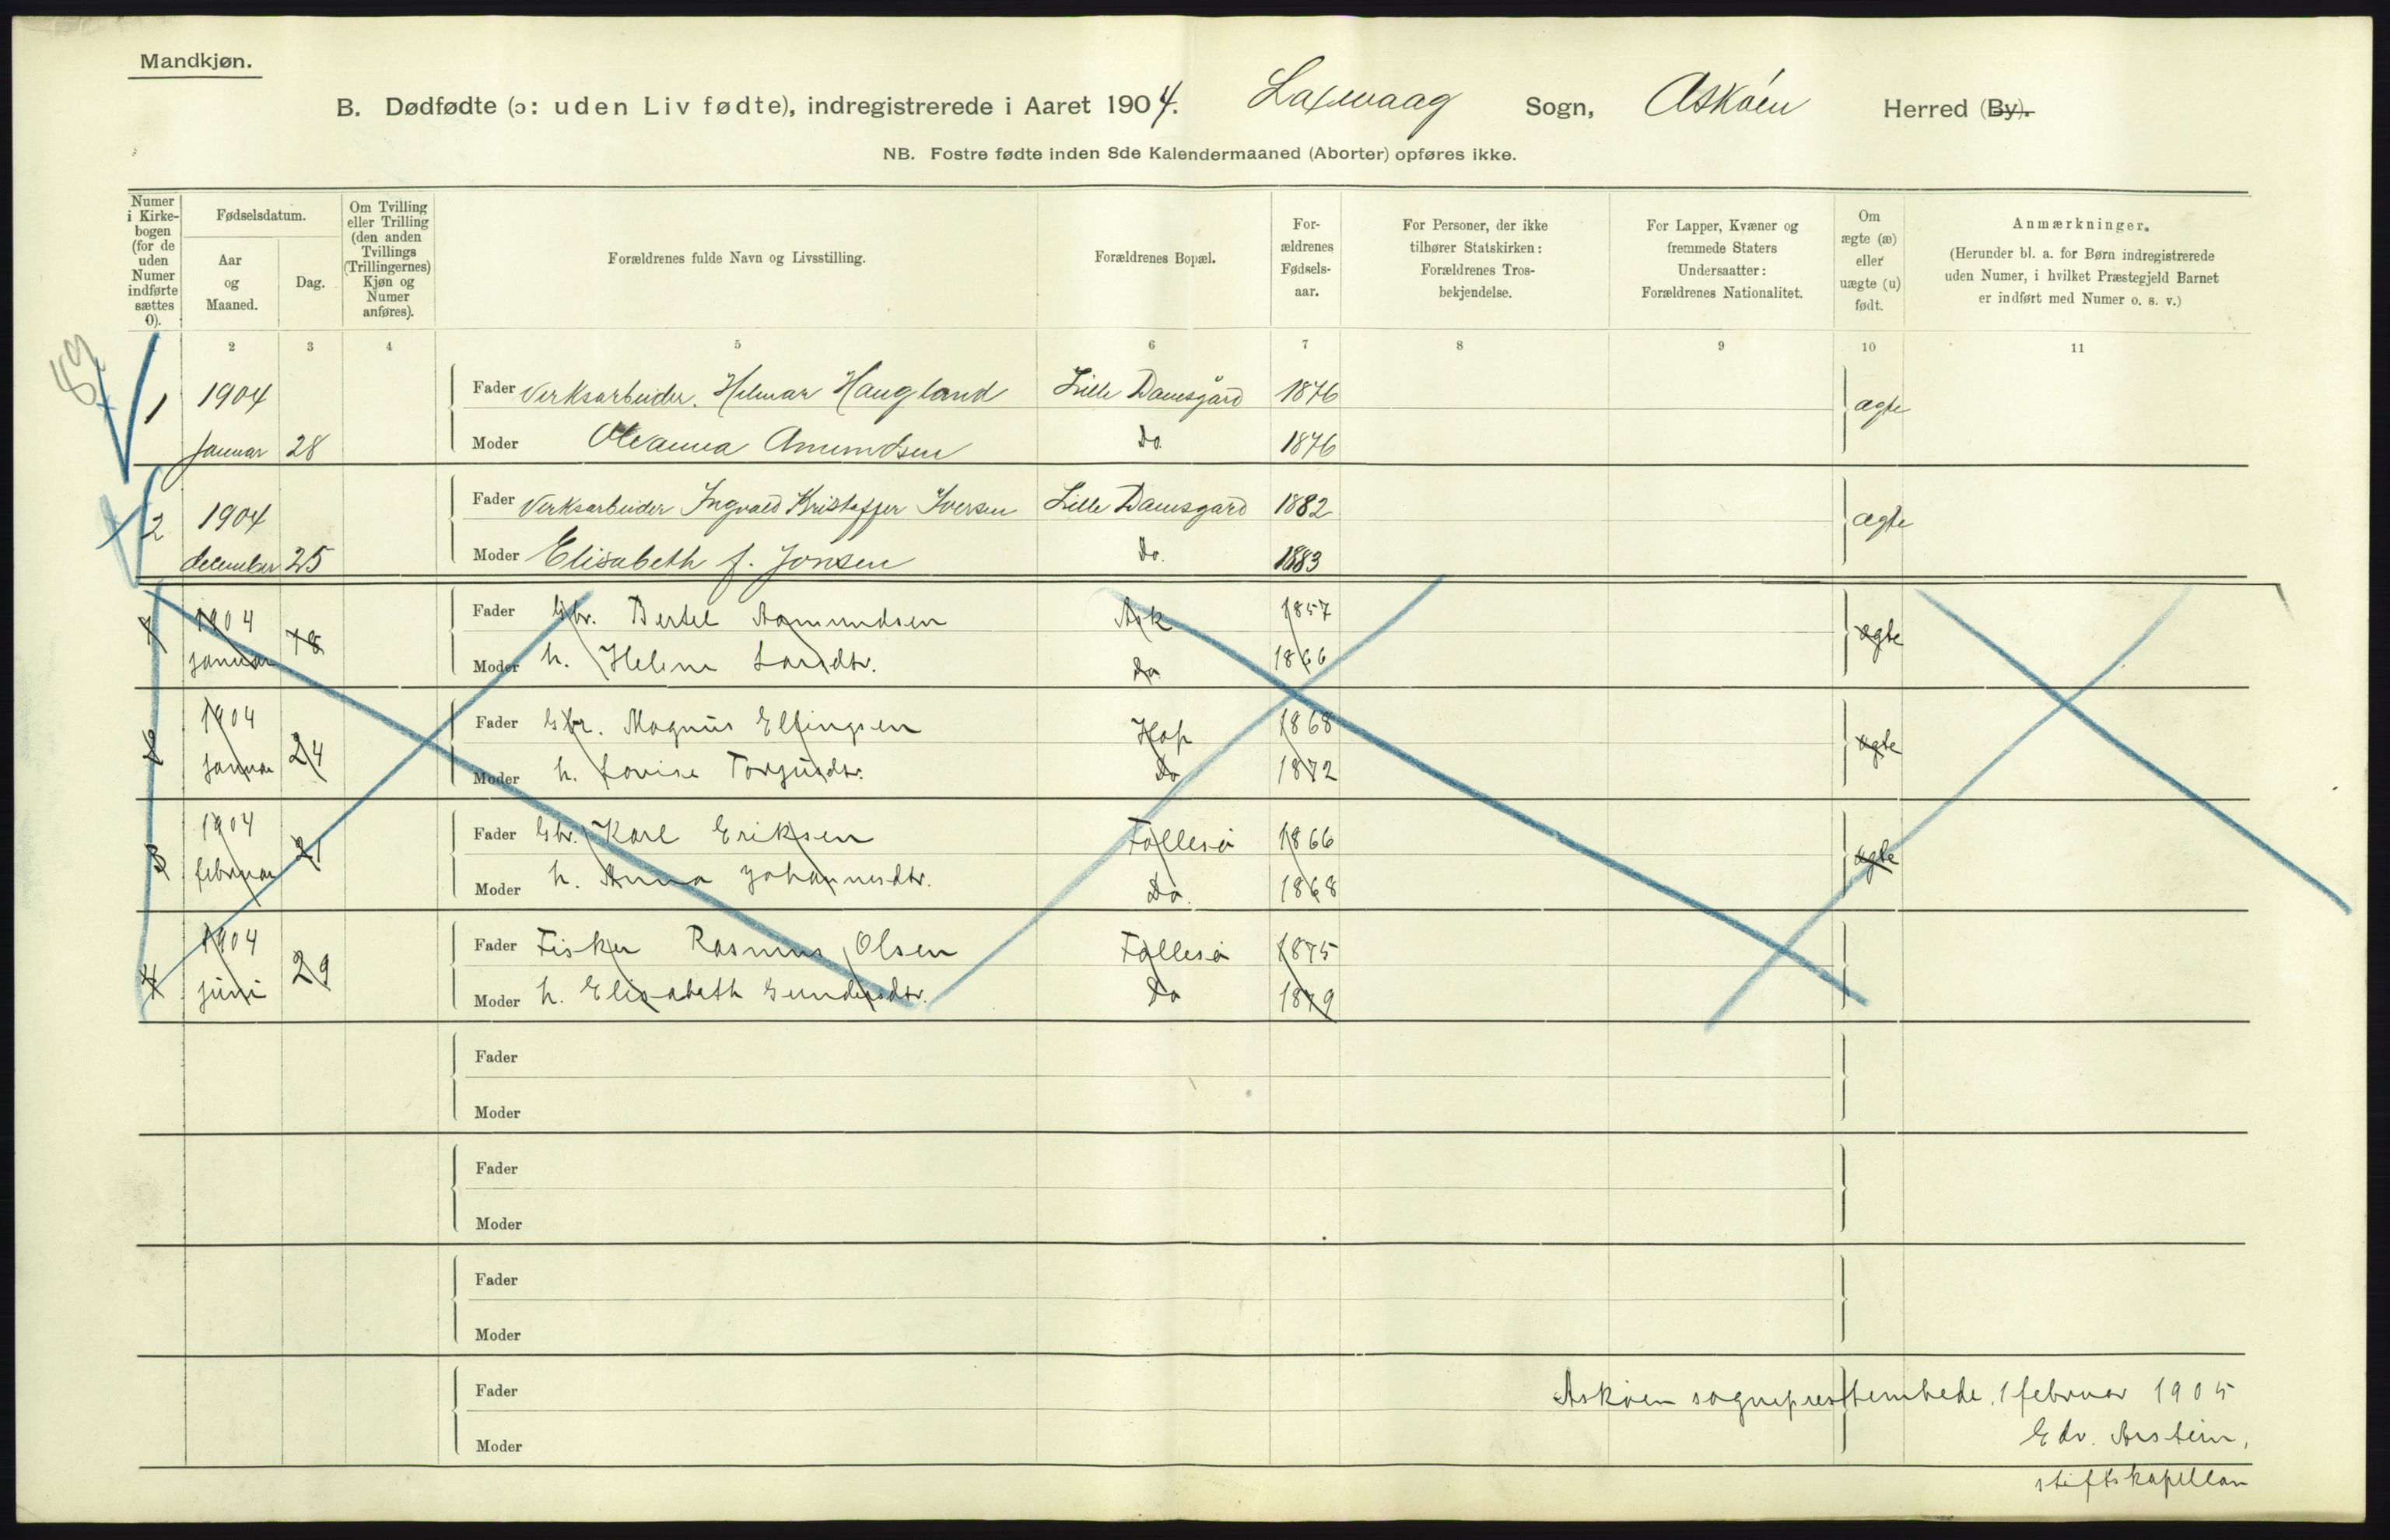 Mandkjøn.
B. Dødfødte (ɔ: uden Liv fødte), indregistrerede i Aaret 1904. Laxevaag Sogn, Askøen Herred (By).
NB. Fostre fødte inden 8de Kalendermaaned (Aborter) opføres ikke.
Numer i Kirkebogen (for de uden Numer indførte sættes 0).
Fødselsdatum.
Aar og Maaned.
Dag.
Om Tvilling eller Trilling (den anden Tvillings (Trillingernes) Kjøn og Numer anføres).
Forældrenes fulde Navn og Livsstilling.
Forældrenes Bopæl.
Forældrenes Fødselsaar.
For Personer, der ikke tilhører Statskirken: Forældrenes Trosbekjendelse.
For Lapper, Kvæner og fremmede Staters Undersaatter: Forældrenes Nationalitet.
Om ægte (æ) eller uægte (u) født.
Anmærkninger.
(Herunder bl. a. for Børn indregistrerede uden Numer, i hvilket Præstegjeld Barnet er indført med Numer o. s. v.)
2 3 4 5 6 7 8 9 10 11
1 1904 Fader Verksarbeider. Helmar Haugland Lille Damsgård 1876 ægte
Januar 28 Moder Oleanna Amundsen Do. 1876
2 1904 Fader Verksarbeider Ingvald Kristoffer Iversen Lille Damsgard 1882 ægte
december 25 Moder Elisabeth f. Jonsen Do. 1883
1 1904 18 Fader Gbr. Bertel Aamundsen Ask 1857 ægte
januar Moder h. Helene Larsdtr. Do. 1866
2 1904 24 Fader Gbr. Magnus Ellingsen Hop 1868 ægte
januar Moder h. Lovise Torgusdtr. Do 1872
3 1904 21 Fader Gbr. Karl Eriksen Follesø 1866 ægte
februar Moder h. Anna Johannesdtr. Do. 1868
4 1904 29 Fader Fisker Rasmus Olsen Follesø 1875
juni Moder h. Elisabeth Gundersdtr. Do 1879
Fader
Moder
Fader
Moder
Fader
Moder
Fader Askøen sogneprestembede, 1 februar 1905
Moder Edv. Arstein,
stiftskapellan